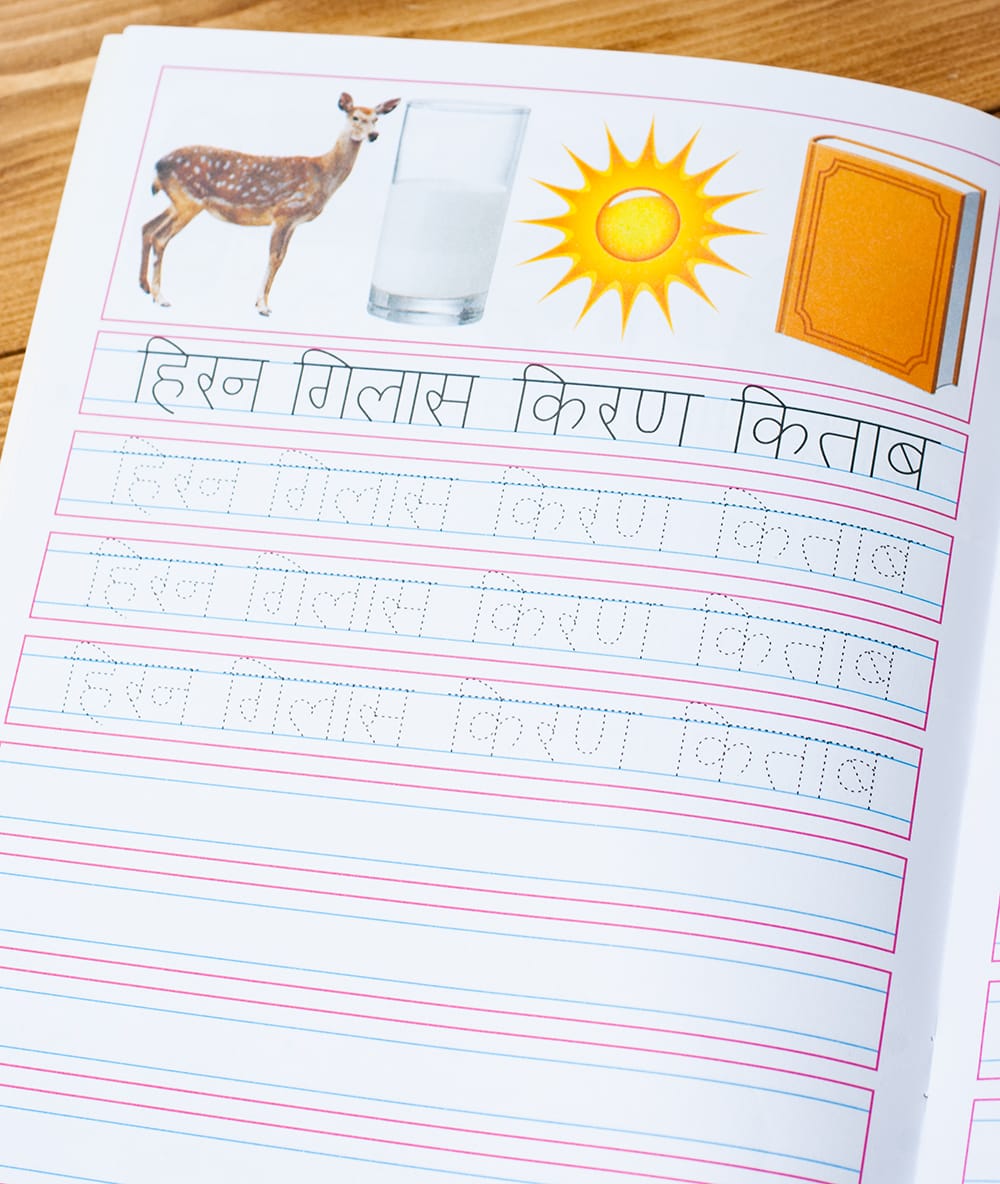 हिरन गिलास किरण किताब
हिरन गिलास किरण किताब
हिरन गिलास किरण किताब
हिरन गिलास किरण किताब